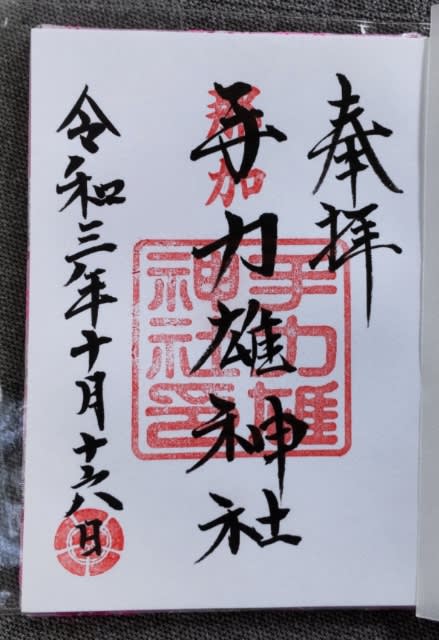 奉拝
那加
手力雄神社
手力雄
神社印
令和三年十月十六日